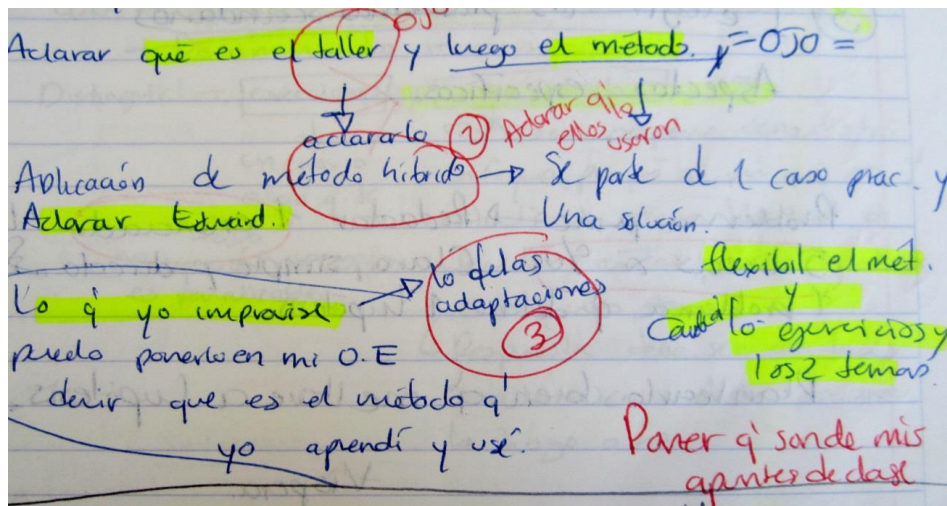 OJO
Aclarar qué es el taller y luego el método. y = OJO =
aclararlo
2 Aclarar q' lo
ellos usaron
Aplicación de método híbrido → Se parte de 1 caso prac. y
Aclarar Eduard.! Una solución.
lo de las
adaptaciones
3
flexibil el met.
y
lo ejercicios y
los 2 temas
Lo q' yo improvisé
puedo ponerlo en mi O.E
decir que es el método q'
yo aprendí y usé.
Poner q' son de mis
apuntes de clase